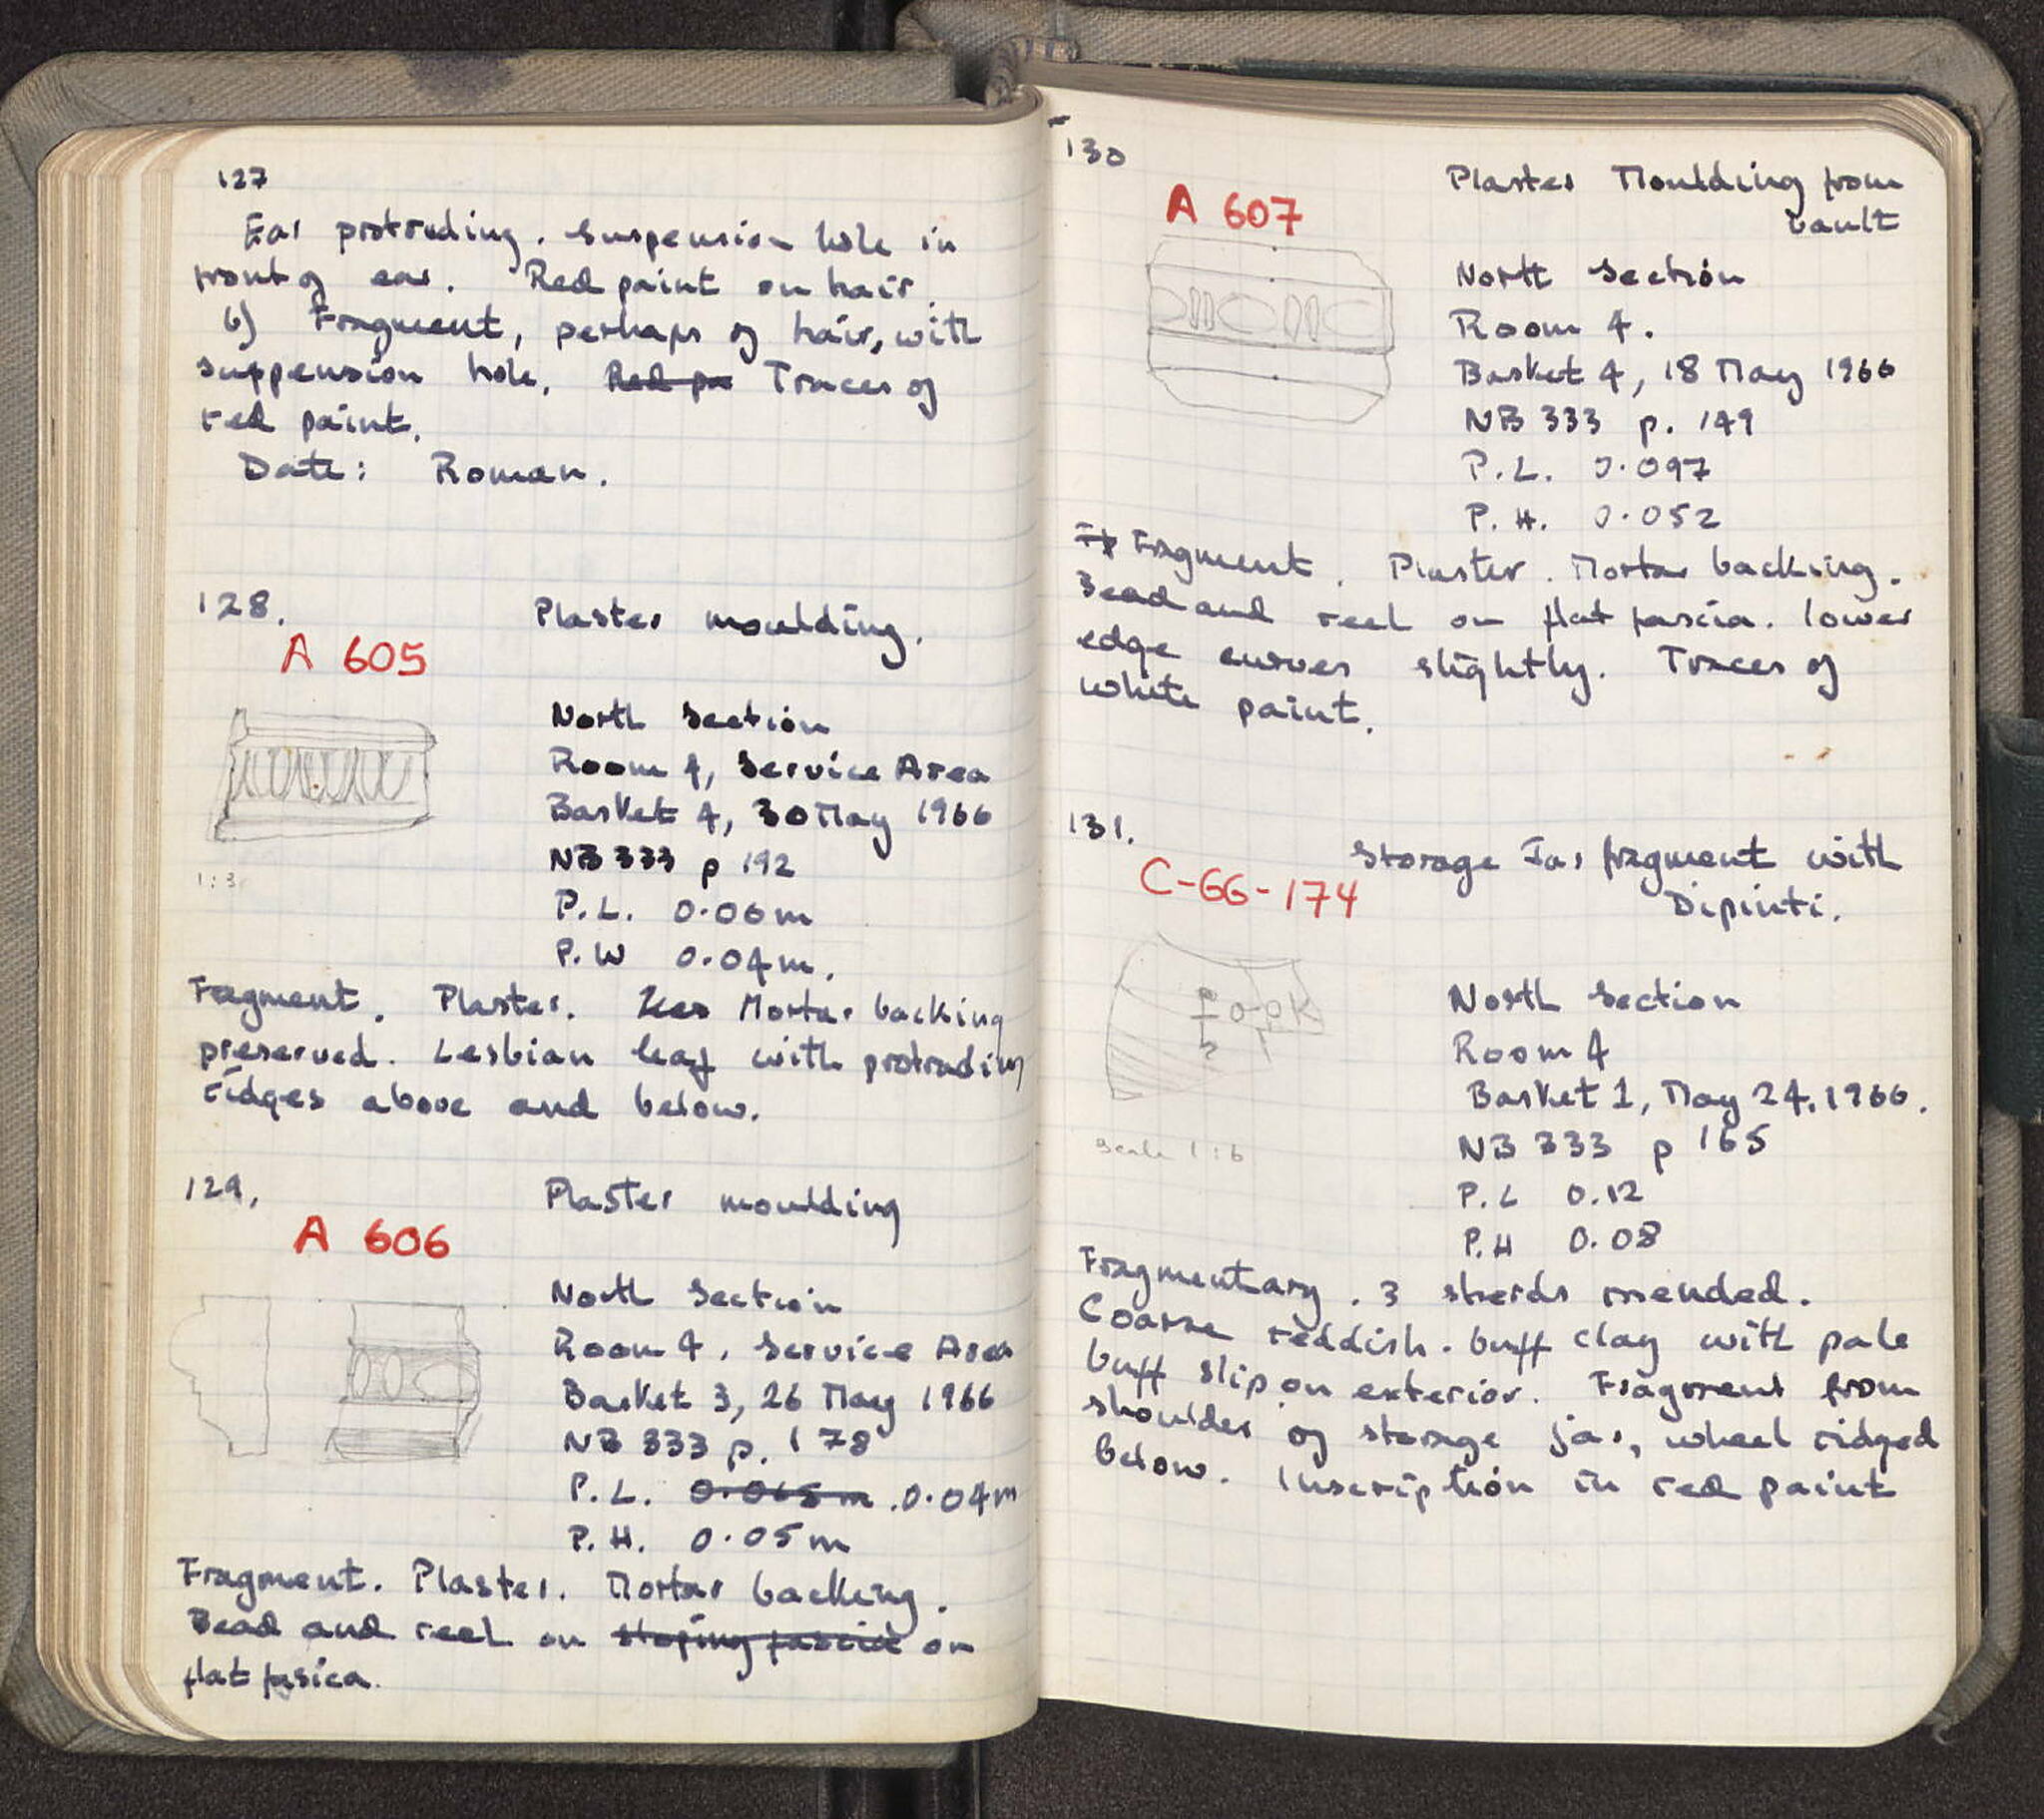 127
Ear protruding. Suspension hole in
front of ear. Red paint on hair.
b) Fragment, perhaps of hair, with
suppension hole. Red pa Traces of
red paint.
Date: Roman.
128.
Plaster moulding.
A 605
North Section
Room 4, Service Area
Basket 4, 30 May 1966
NB 333 p 192
1:3
P.L. 0.06m
P.W 0.04m.
Fragment. Plaster. Mortar backing
preserved. Lesbian leaf with protruding
ridges above and below.
129.
Plaster moulding
A 606
North Section
Room 4, Service Area
Basket 3, 26 May 1966
NB 333 p. 178
P.L. 0.065m .0.04m
P.H. 0.05m
Fragment. Plaster. Mortar backing.
Bead and reel on sloping fascia on
flat fasica.
130
Plaster Moulding from
Vault
A 607
North Section
Room 4.
Basket 4, 18 May 1966
NB 333 p. 149
P.L. 0.097
P.H. 0.052
Fragment. Plaster. Mortar backing.
Bead and reel on flat fascia. Lower
edge curves slightly. Traces of
white paint.
131.
Storage Jar fragment with
Dipinti.
C-66-174
North Section
Room 4
Basket 1, May 24, 1966.
NB 333 p 165
Scale 1:6
P.L 0.12
P.H 0.08
Fragmentary. 3 sherds mended.
Coarse reddish-buff clay with pale
buff slip on exterior. Fragment from
shoulder of storage jar, wheel ridged
below. Inscription in red paint